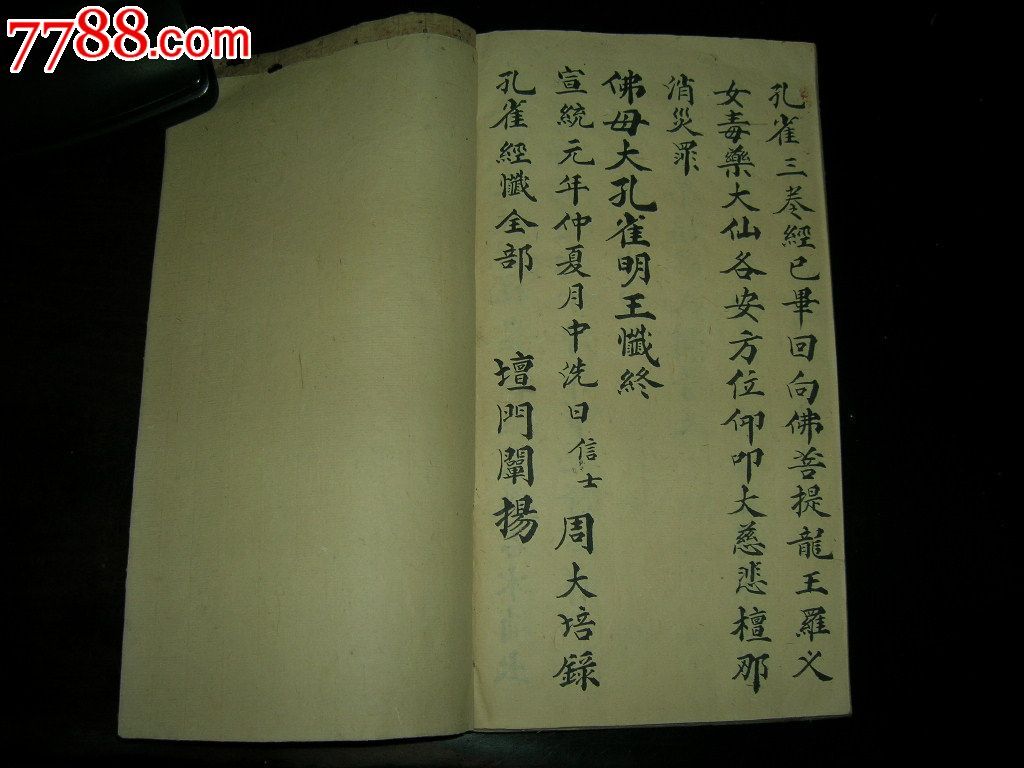 7788.com
孔雀三卷經已畢回向佛菩提龍王羅义
女毒藥大仙各安方位仰叩大慈悲檀那
消災罪
佛母大孔雀明王懺終
宣統元年仲夏月中洗日信士 周大培錄
孔雀經懺全部 壇門闡揚